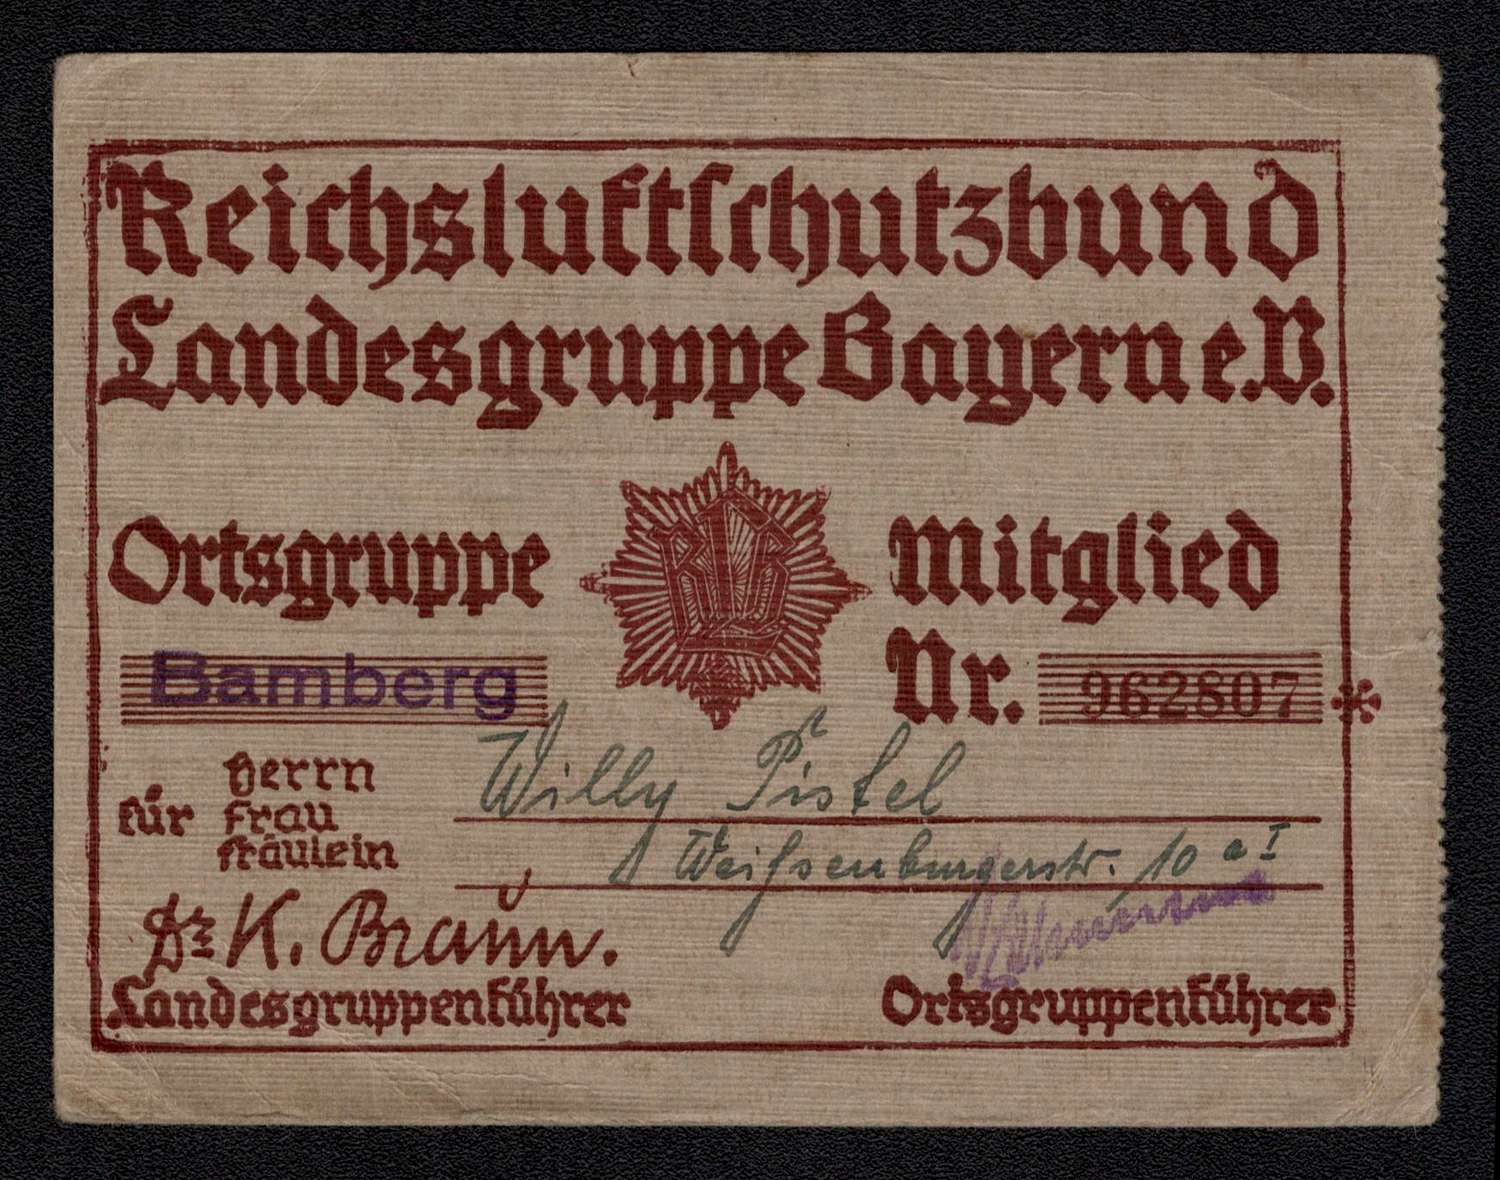 Reichsluftschutzbund
Landesgruppe Bayern e.V.
Ortsgruppe
RLB
Mitglied
Bamberg
Nr. 962807
für Herrn
Frau
Fräulein
Willy Pistel
Weißenburgerstr. 10 a I
Dr K. Braun.
Landesgruppenführer
Ortsgruppenführer